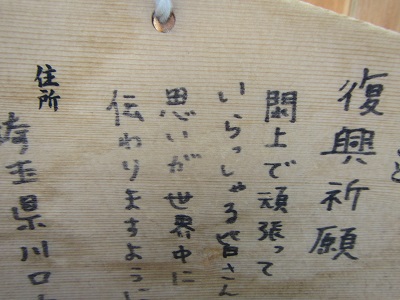 復興祈願
閖上で頑張って
いらっしゃる皆さん
思いが世界中に
伝わりますように
住所
埼玉県川口